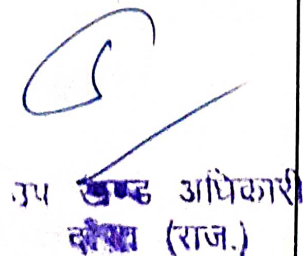 उप खण्ड अधिकारी
दौसा (राज.)